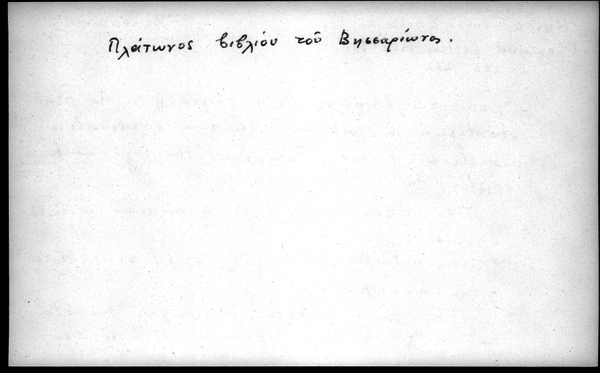 Πλάτωνος βιβλίου τοῦ Βησσαρίωνος.